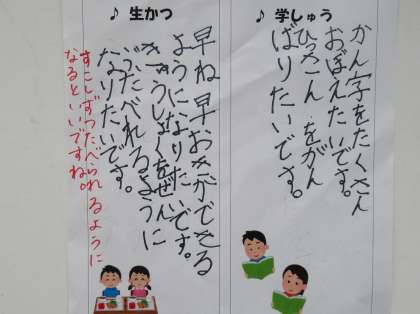 ♪ 学しゅう
かん字をたくさん
おぼえたいです。
ひっさんをがん
ばりたいです。
♪ 生かつ
早ね早おきができる
ようになりたいです。
きゅうしょくをぜんぶ
たべれるように
なりたいです。
すこしずつたべられるように
なるといいですね。